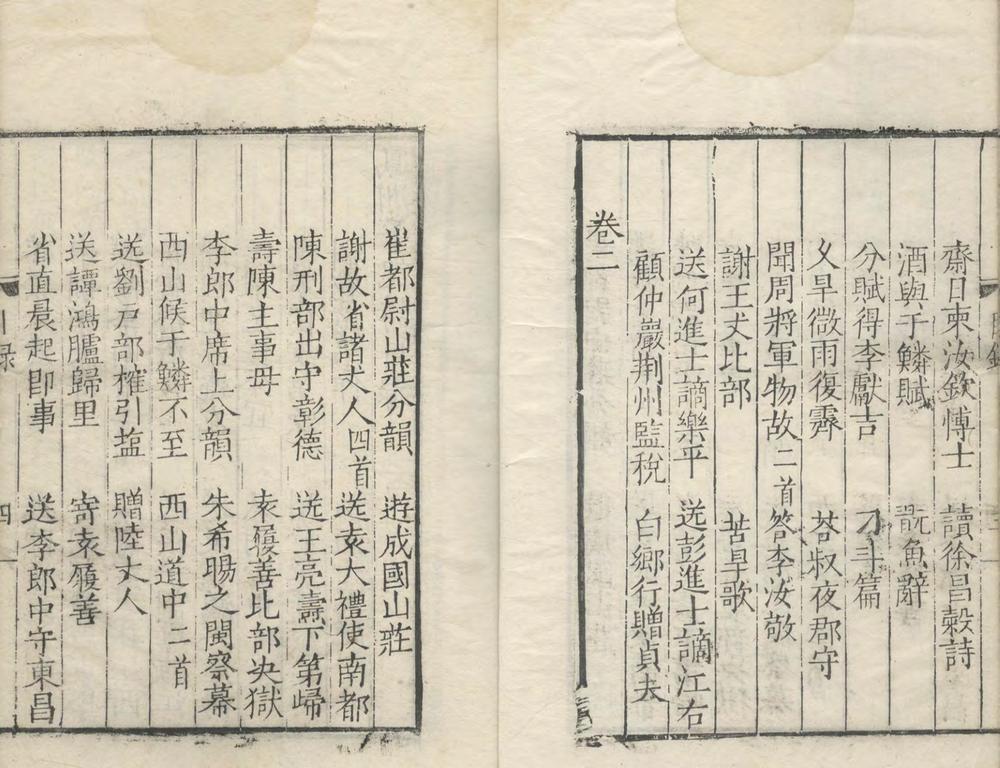 齋日柬汝欽愽士　讀徐昌穀詩
酒與子鱗賦　翫魚辭
分賦得李獻吉　刁斗篇
久旱微雨復霽　答叔夜郡守
聞周將軍物故二首　答李汝敬
謝王丈比部　苦旱歌
送何進士謫樂平　送彭進士謫江右
顧仲巖荆州監稅　白鄉行贈貞夫
卷二
崔都尉山莊分韻　遊成國山莊
謝故省諸丈人四首　送袁大禮使南都
陳刑部出守彰德　送王亮壽下第歸
壽陳主事母　袁履善比部决獄
李郎中席上分韻　朱希暘之閩察幕
西山候于鱗不至　西山道中二首
送劉户部榷引塩　贈陸丈人
送譚鴻臚歸里　寄袁履善
省直晨起即事　送李郎中守東昌
目録　四